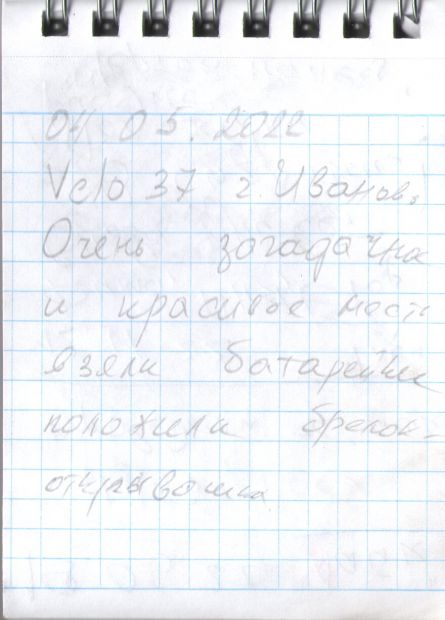 04 05. 2022
Velo 37 г. Иваново
Очень загадочное
и красивое место
взяли батарейки
положили брелок-
открывашка